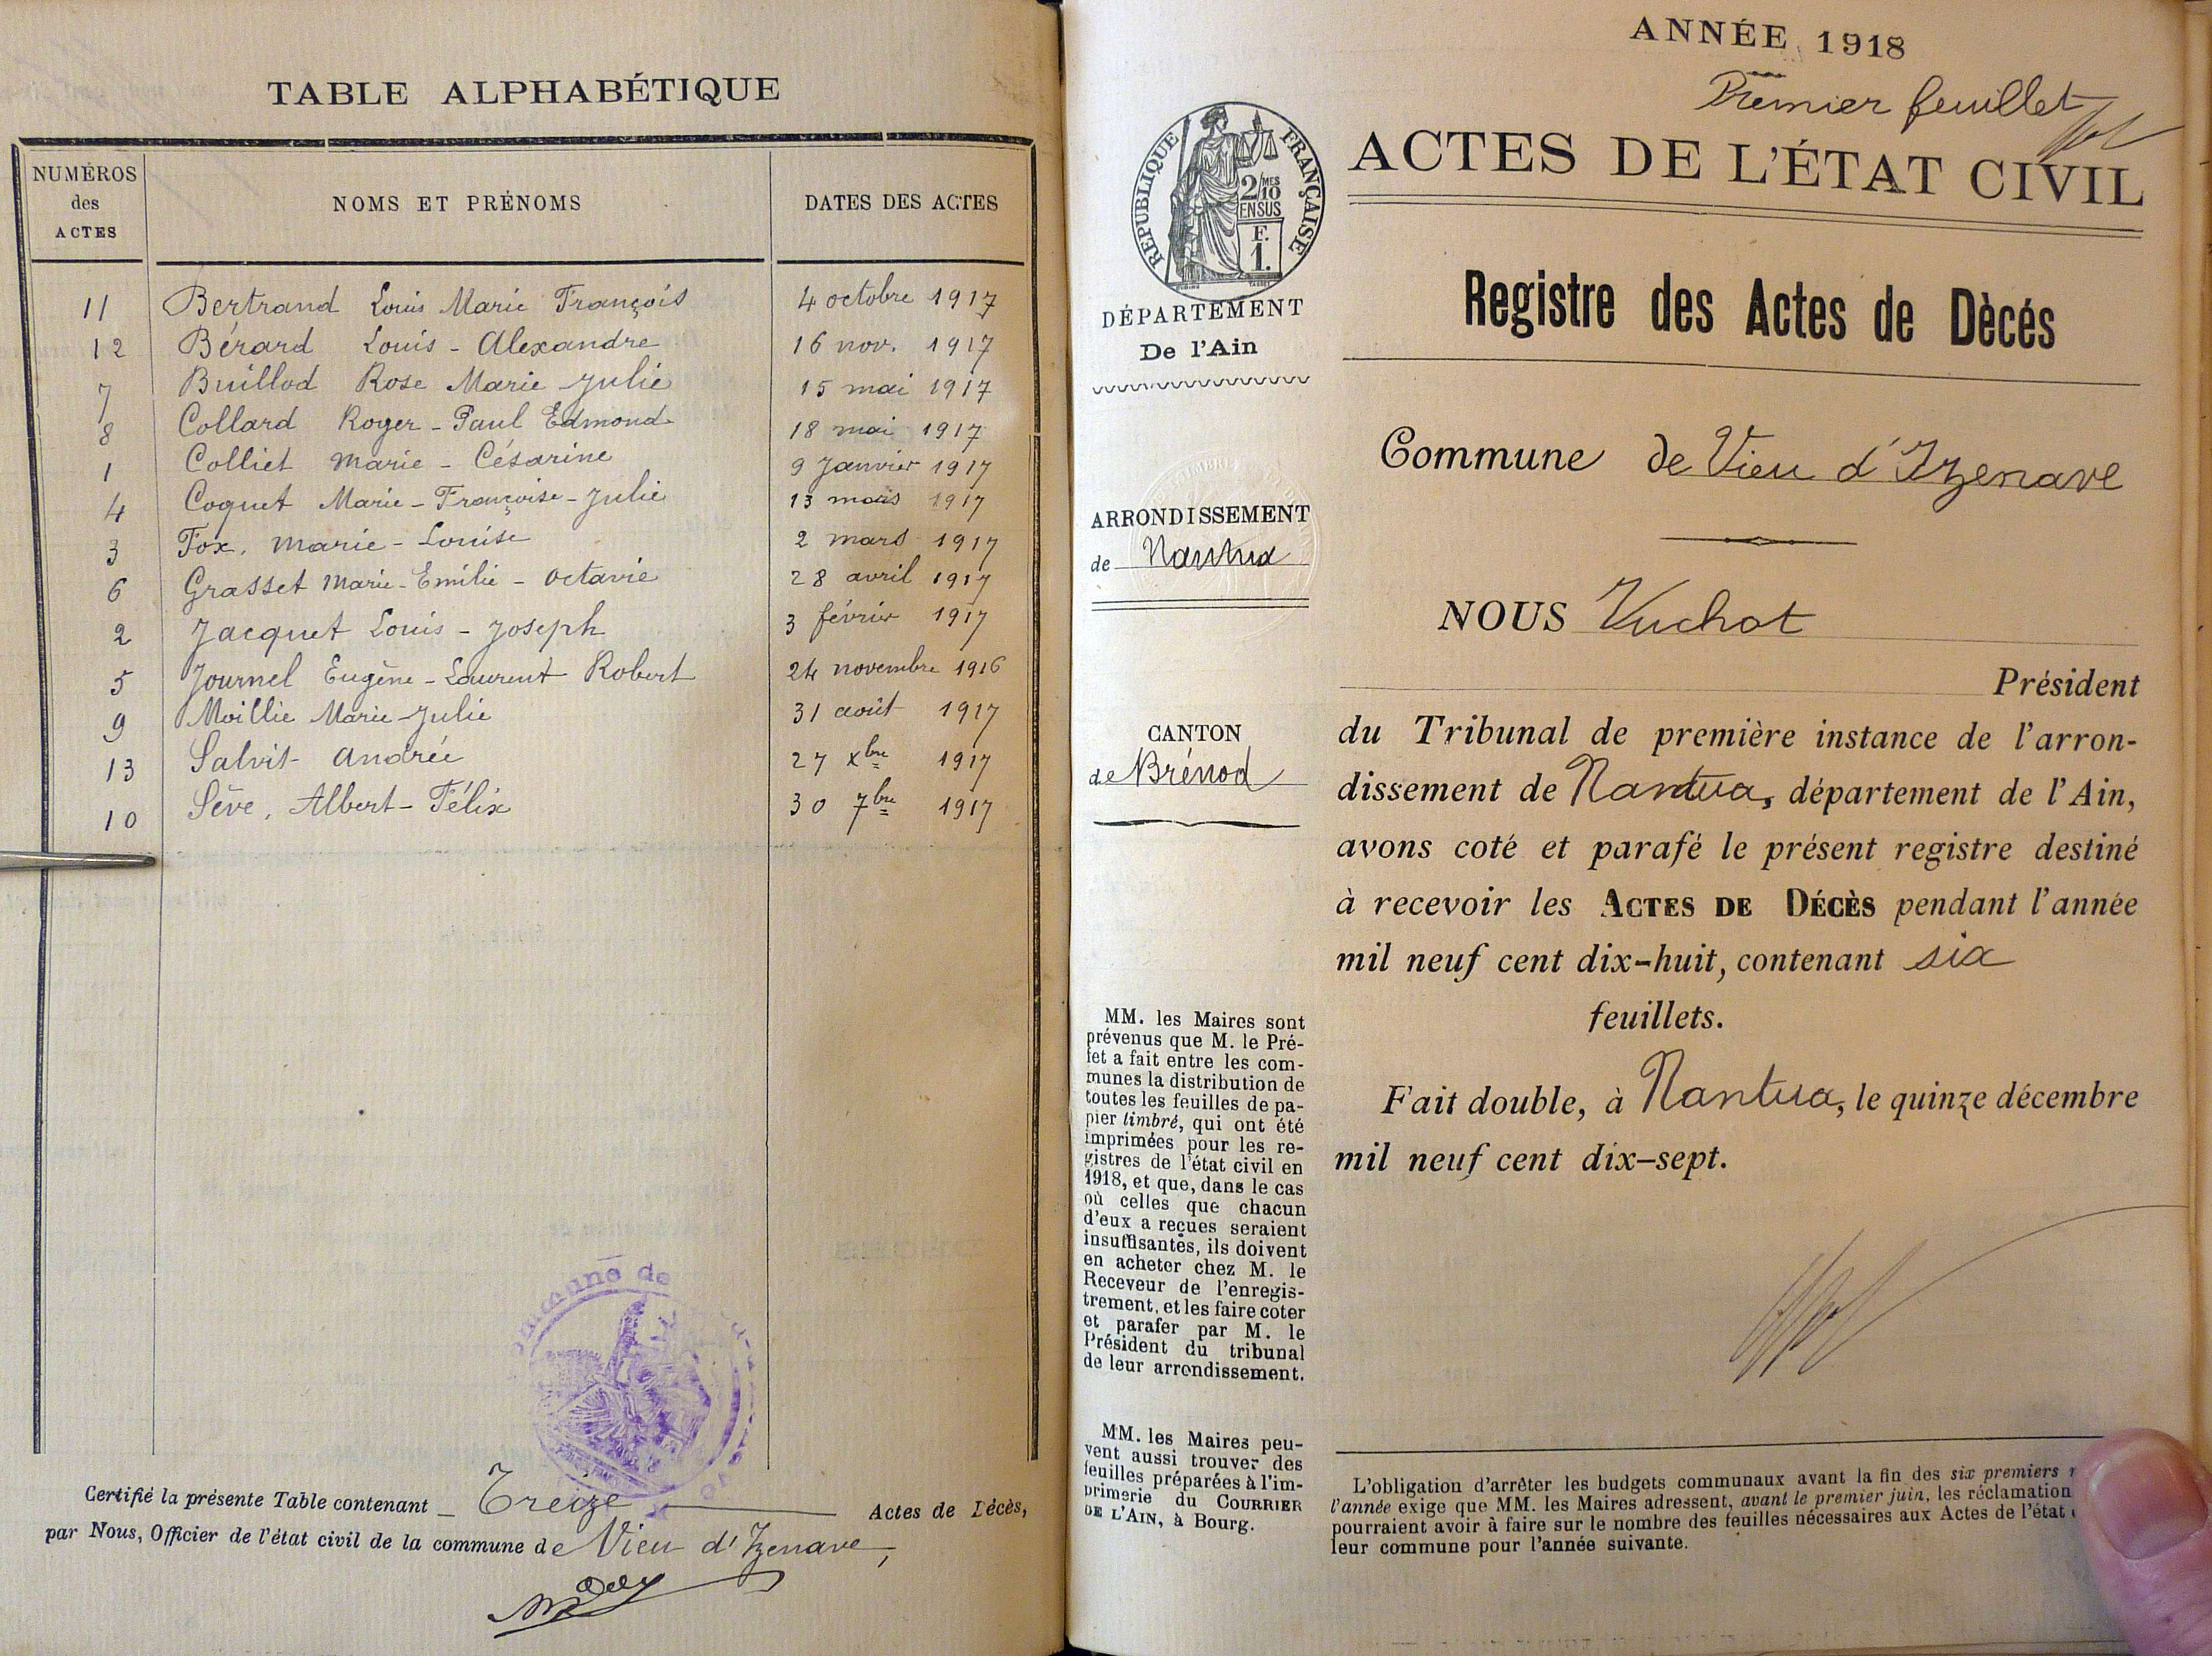 TABLE ALPHABÉTIQUE
NUMÉROS des ACTES NOMS ET PRÉNOMS DATES DES ACTES
11 Bertrand Louis Marie François 4 octobre 1917
12 Bérard Louis - Alexandre 16 nov. 1917
7 Buillod Rose Marie Julie 15 mai 1917
8 Collard Roger - Paul Edmond 18 mai 1917
1 Colliet Marie - Césarine 9 Janvier 1917
4 Coquet Marie - Françoise - Julie 13 mars 1917
3 Fox, Marie - Louise 2 mars 1917
6 Grasset Marie - Emilie - Octavie 28 avril 1917
2 Jacquet Louis - Joseph 3 février 1917
5 Journel Eugène - Laurent Robert 24 novembre 1916
9 Moillie Marie - Julie 31 août 1917
13 Salvit Andrée 27 xbre 1917
10 Sève, Albert - Félix 30 7bre 1917
Commune de
Certifié la présente Table contenant Treize Actes de Décès,
par Nous, Officier de l'état civil de la commune de Vieu d'Izenave,
ANNÉE 1918
Premier feuillet
RÉPUBLIQUE FRANÇAISE
2/10MES
EN SUS
F.
1.
DÉPARTEMENT
De l'Ain
ARRONDISSEMENT
de Nantua
CANTON
de Brénod
MM. les Maires sont
prévenus que M. le Pré-
fet a fait entre les com-
munes la distribution de
toutes les feuilles de pa-
pier timbré, qui ont été
imprimées pour les re-
gistres de l'état civil en
1918, et que, dans le cas
où celles que chacun
d'eux a reçues seraient
insuffisantes, ils doivent
en acheter chez M. le
Receveur de l'enregis-
trement, et les faire coter
et parafer par M. le
Président du tribunal
de leur arrondissement.
MM. les Maires peu-
vent aussi trouver des
feuilles préparées à l'im-
primerie du COURRIER
DE L'AIN, à Bourg.
ACTES DE L'ÉTAT CIVIL
Registre des Actes de Dècés
Commune de Vieu d'Izenave
NOUS Vuchot
Président
du Tribunal de première instance de l'arron-
dissement de Nantua, département de l'Ain,
avons coté et parafé le présent registre destiné
à recevoir les ACTES DE DÉCÈS pendant l'année
mil neuf cent dix-huit, contenant six
feuillets.
Fait double, à Nantua, le quinze décembre
mil neuf cent dix-sept.
L'obligation d'arrêter les budgets communaux avant la fin des six premiers
l'année exige que MM. les Maires adressent, avant le premier juin, les réclamation
pourraient avoir à faire sur le nombre des feuilles nécessaires aux Actes de l'état
leur commune pour l'année suivante.